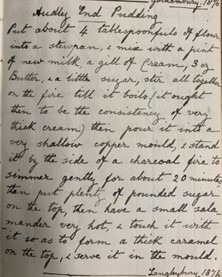 Gorhambury, 1896
Audley End Pudding
Put about 4 tablespoonfuls of flour
into a stewpan, & mix with a pint
of new milk, a gill of Cream, 3 oz
Butter, & a little sugar, stir all together
on the fire till it boils, (it ought
then to be the consistency of very
thick cream) then pour it into a
very shallow copper mould, & stand
it by the side of a charcoal fire to
simmer gently for about 20 minutes,
then put plenty of pounded sugar
on the top, then have a small sala
mander very hot, & touch it with
it so as to form a thick caramel
on the top, & serve it in the mould
Langleybury, 189